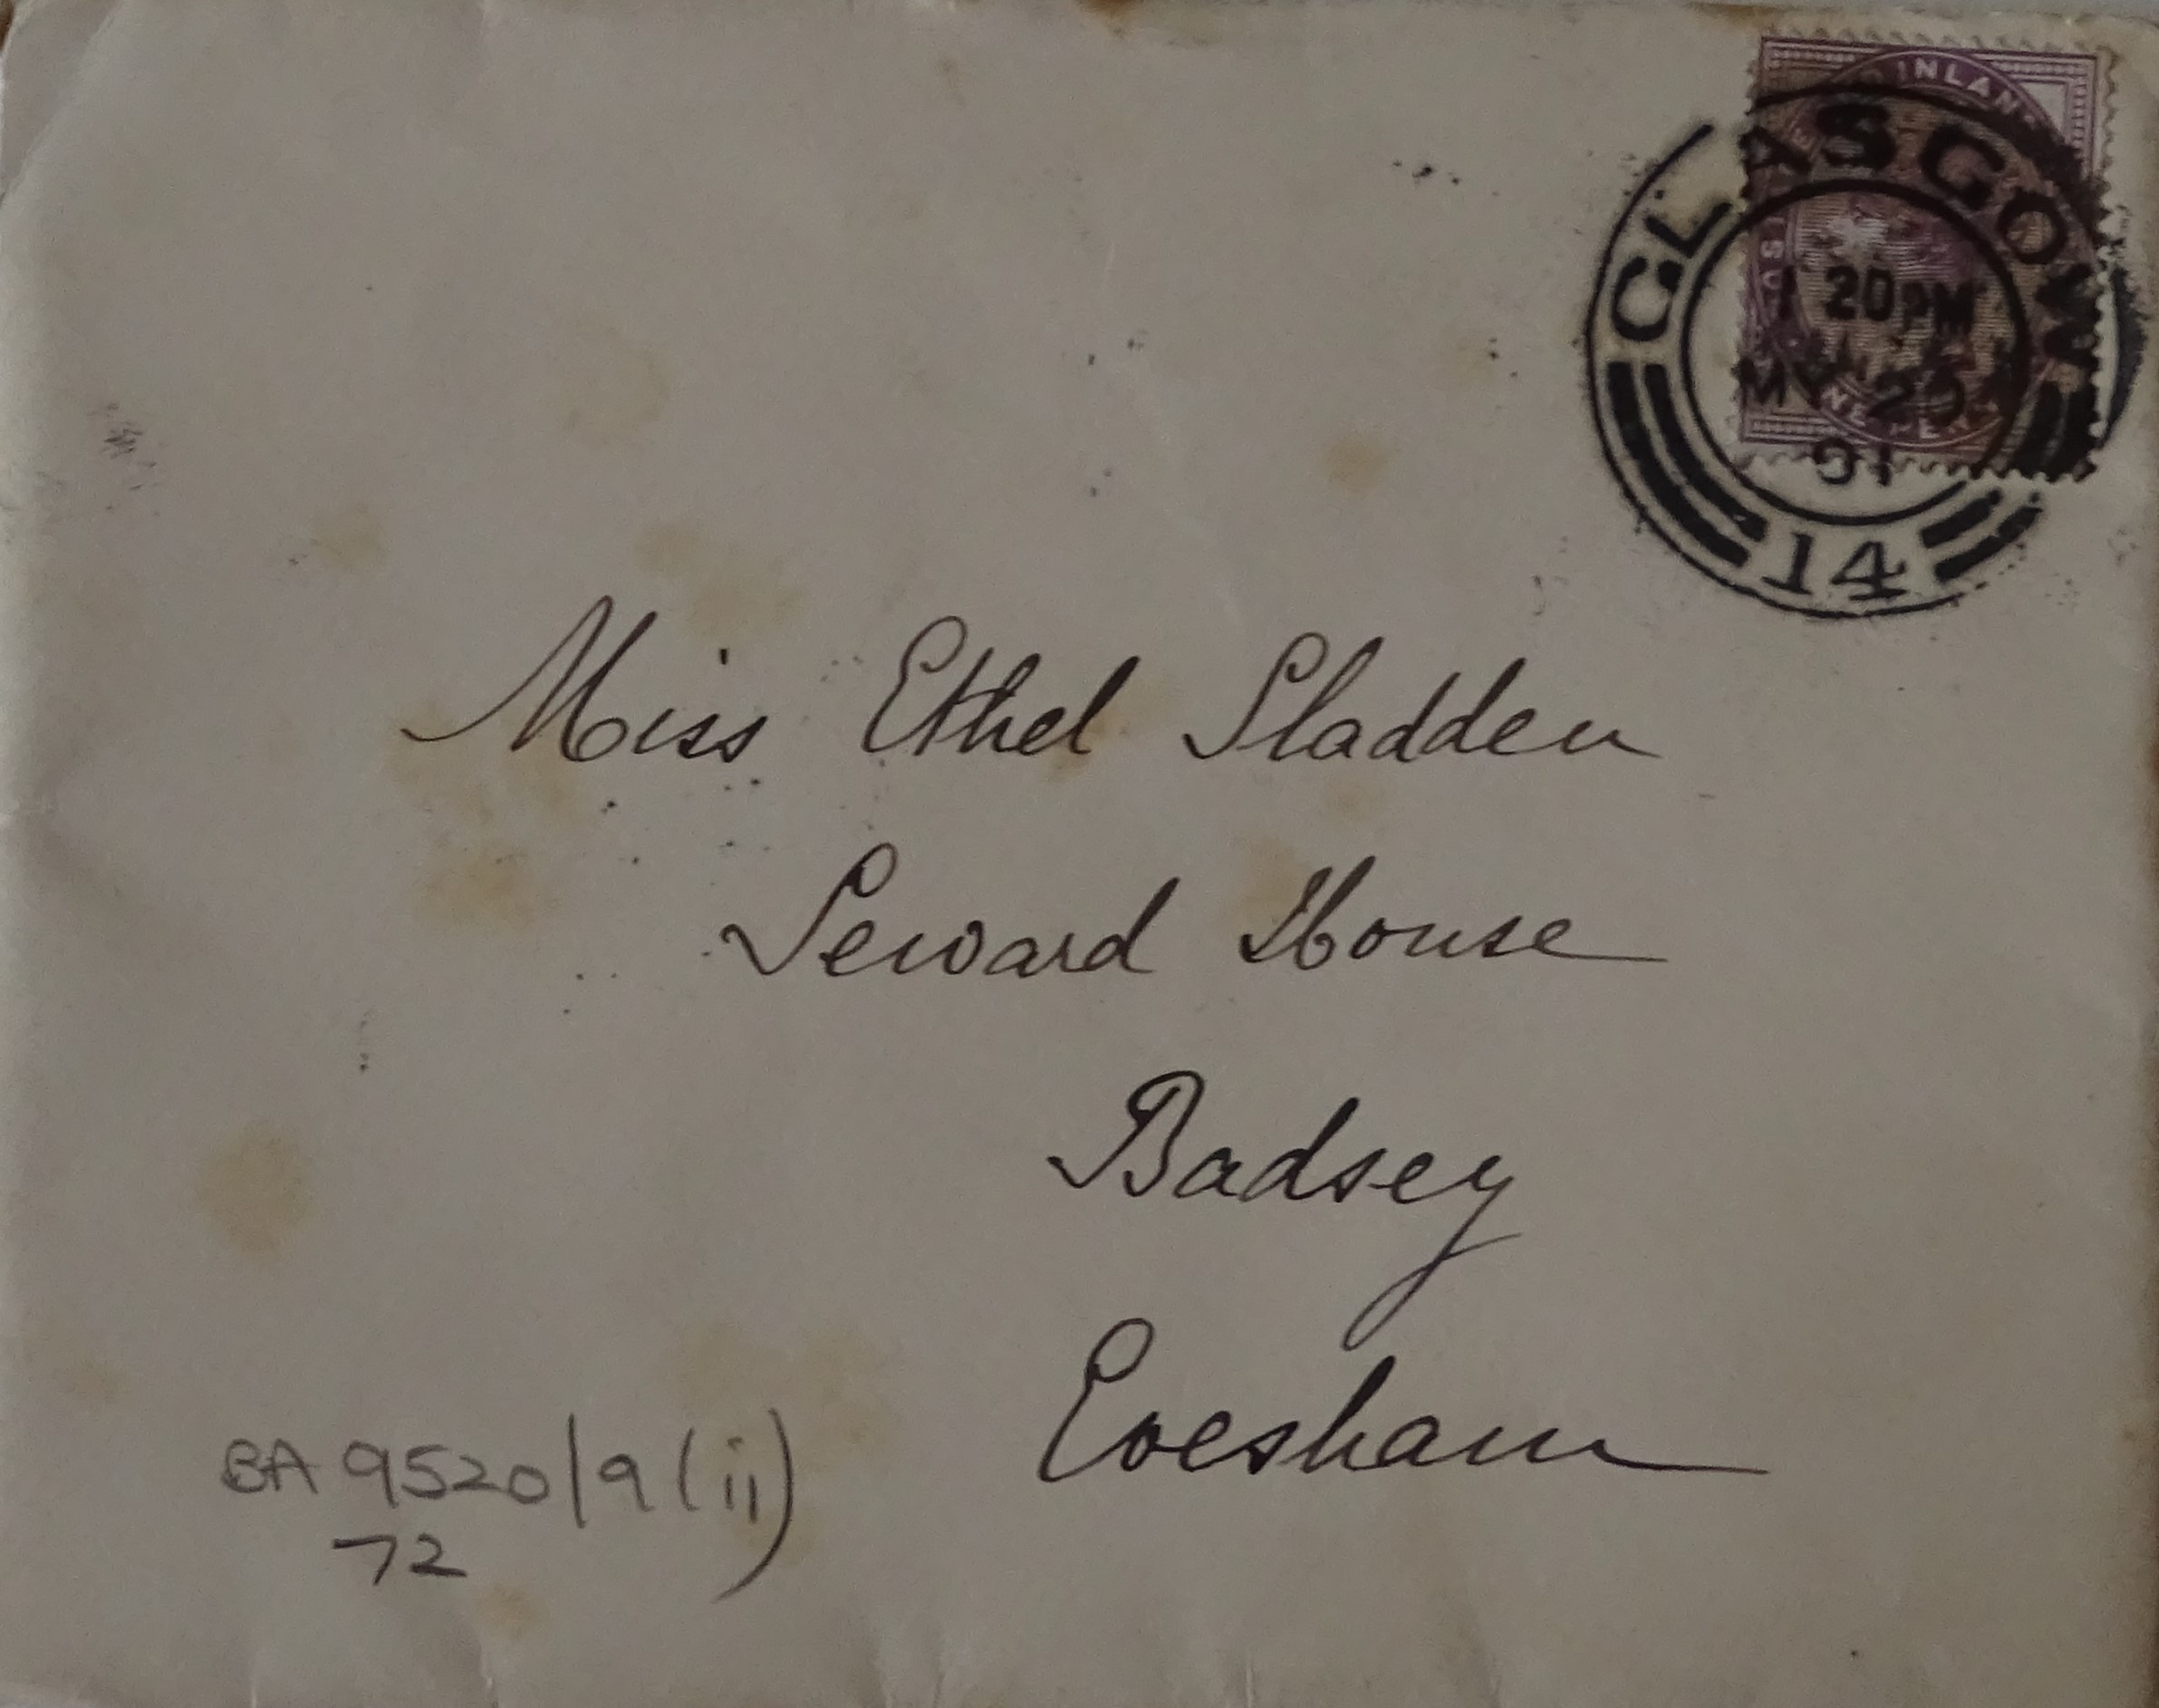 INLAN
GLASGOW
1 20 PM
MY 25
01
14
Miss Ethel Sladden
Seward House
Badsey
Evesham
BA 9520/9(ii)
72